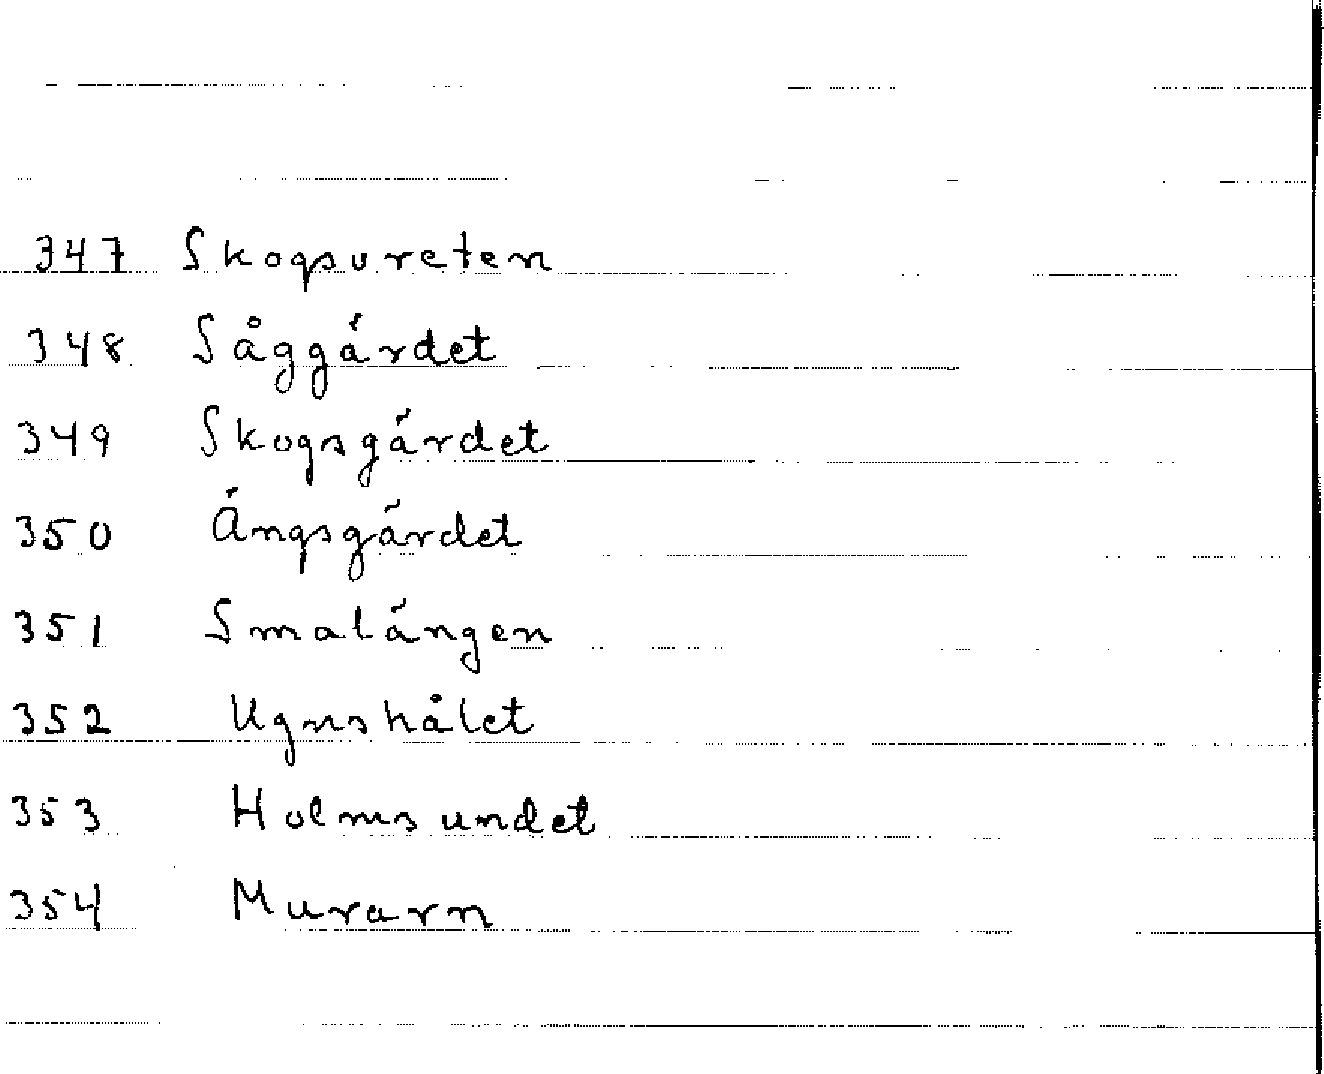 347 Skogsvreten
348 Såggärdet
349 Skogsgärdet
350 Ängsgärdet
351 Smalängen
352 Ugnshålet
353 Holmsundet
354 Murarn